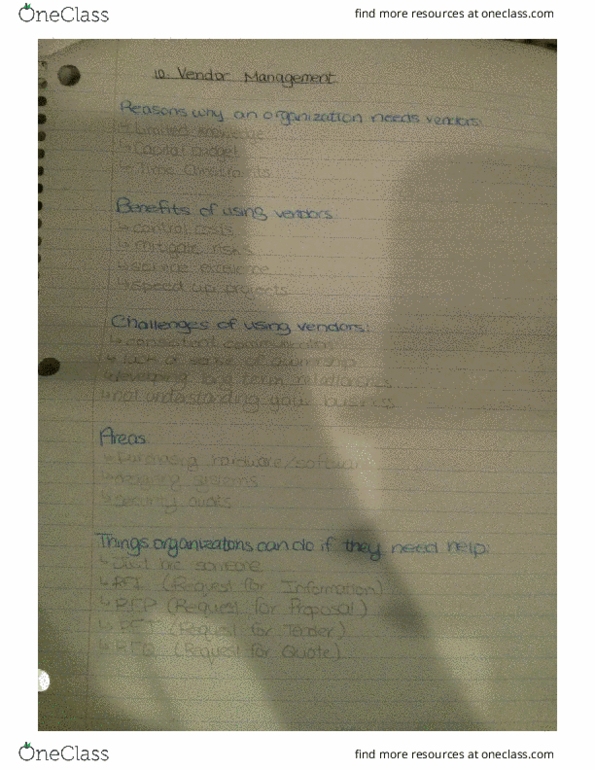 OneClass
find more resources at oneclass.com
10. Vendor Management
Reasons why an organization needs vendors:
↳ Limited knowledge
↳ Capital budget
↳ Time constraints
Benefits of using vendors:
↳ control costs
↳ mitigate risks
↳ service excellence
↳ speed up projects
Challenges of using vendors:
↳ consistent communication
↳ lack of sense of ownership
↳ developing long term relationships
↳ not understanding your business
Areas
↳ purchasing hardware/software
↳ systems
↳ security audits
Things organizations can do if they need help:
↳ Just hire someone
↳ RFI (Request for Information)
↳ RFP (Request for Proposal)
↳ RFT (Request for Tender)
↳ RFQ (Request for Quote)
OneClass
find more resources at oneclass.com